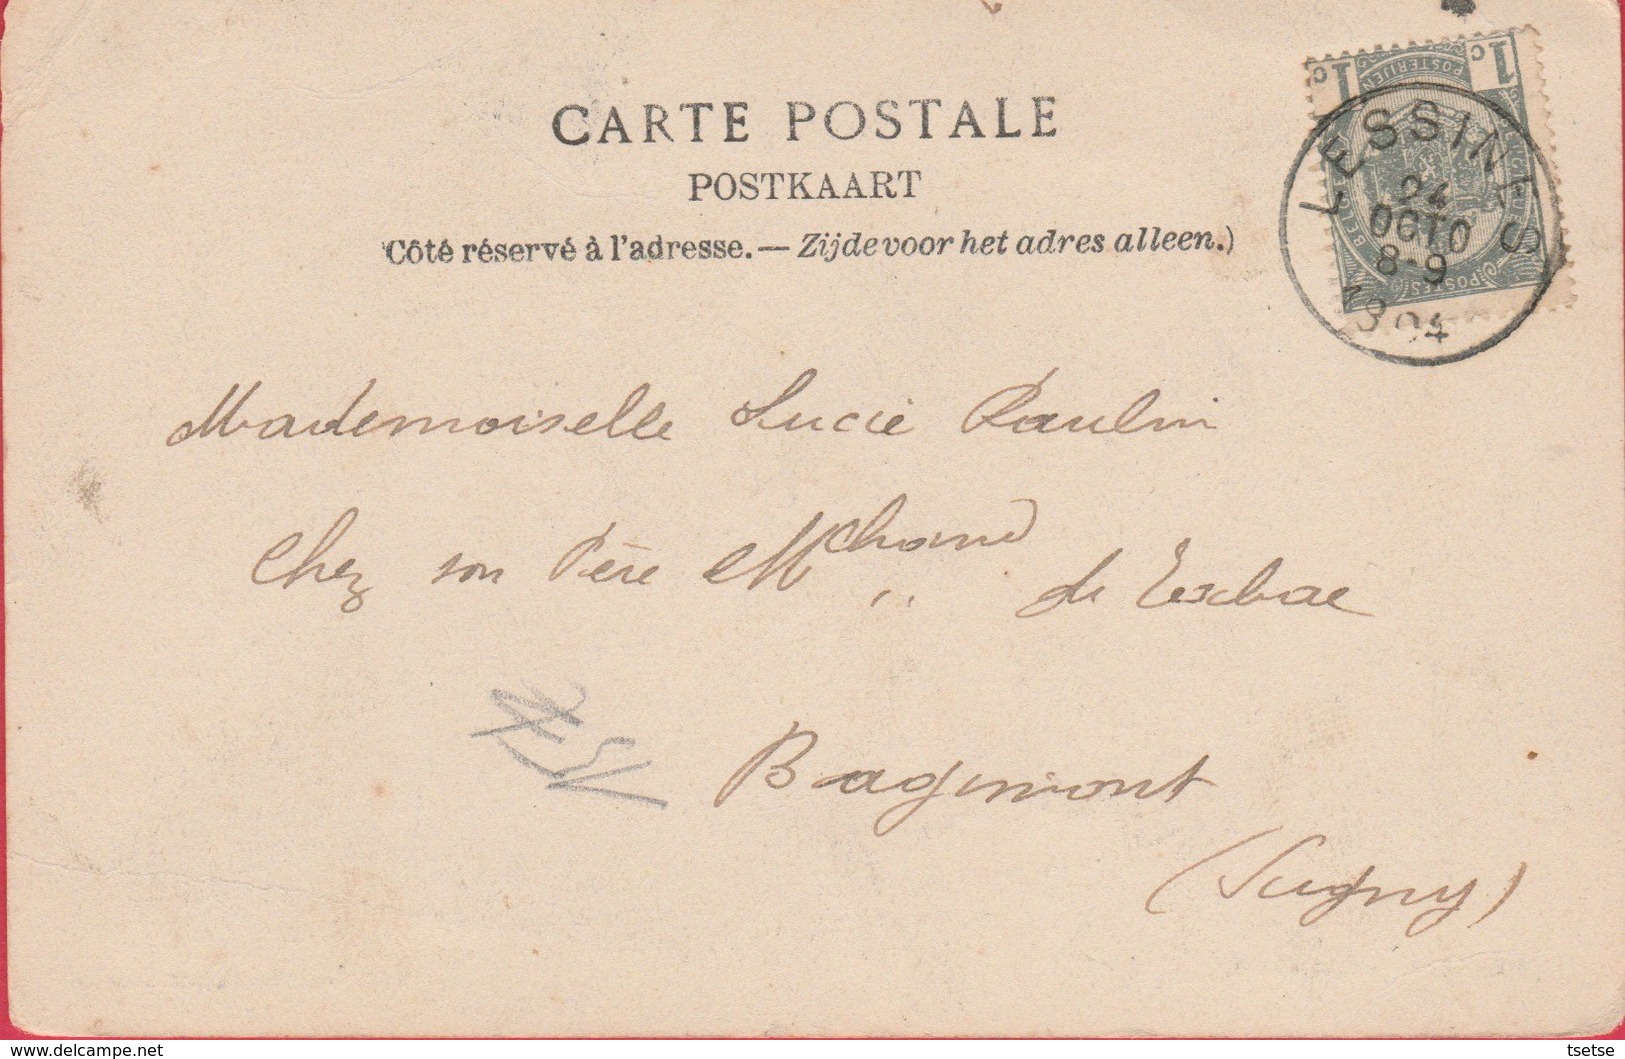 CARTE POSTALE
POSTKAART
(Côté réservé à l'adresse. — Zijde voor het adres alleen.)
1 c 1 c
POSTERIJEN
POSTES
LESSINES
24
OCTO
8-9
1904
Mademoiselle Lucie Paulin
Chez son Père M chand
de Tabac
Bagimont
(Sugny)
delcampe.net
tsetse